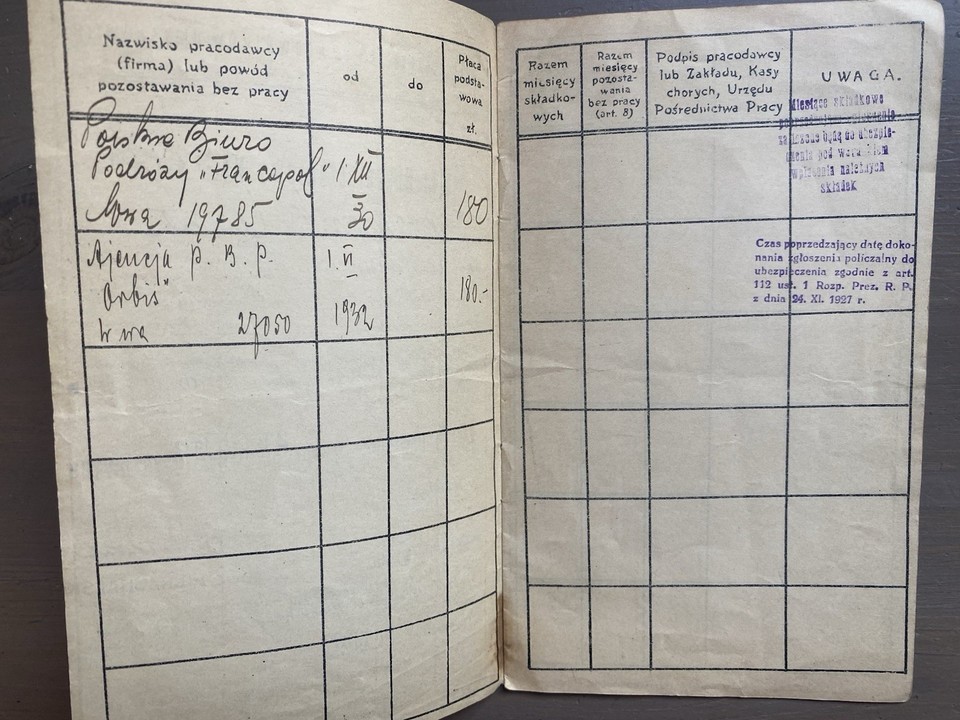 Nazwisko pracodawcy
(firma) lub powód
pozostawania bez pracy
od
do
Płaca
podsta-
wowa
zł.
Polskie Biuro
Podróży „Francopol" 1 XII
30
19785
180
Ajencja P. B. P.
„Orbis"
W-wa 27050
1.VI
1932
180.-
Razem
miesięcy
składko-
wych
Razem
miesięcy
pozosta-
wania
bez pracy
(art. 8)
Podpis pracodawcy
lub Zakładu, Kasy
chorych, Urzędu
Pośrednictwa Pracy
UWAGA.
Miesiące składkowe
zaliczone będą do ubezpie-
czenia pod warunkiem
wpłacenia należnych
składek
Czas poprzedzający datę doko-
nania zgłoszenia policzalny do
ubezpieczenia zgodnie z art.
112 ust. 1 Rozp. Prez. R. P.
z dnia 24. XI. 1927 r.